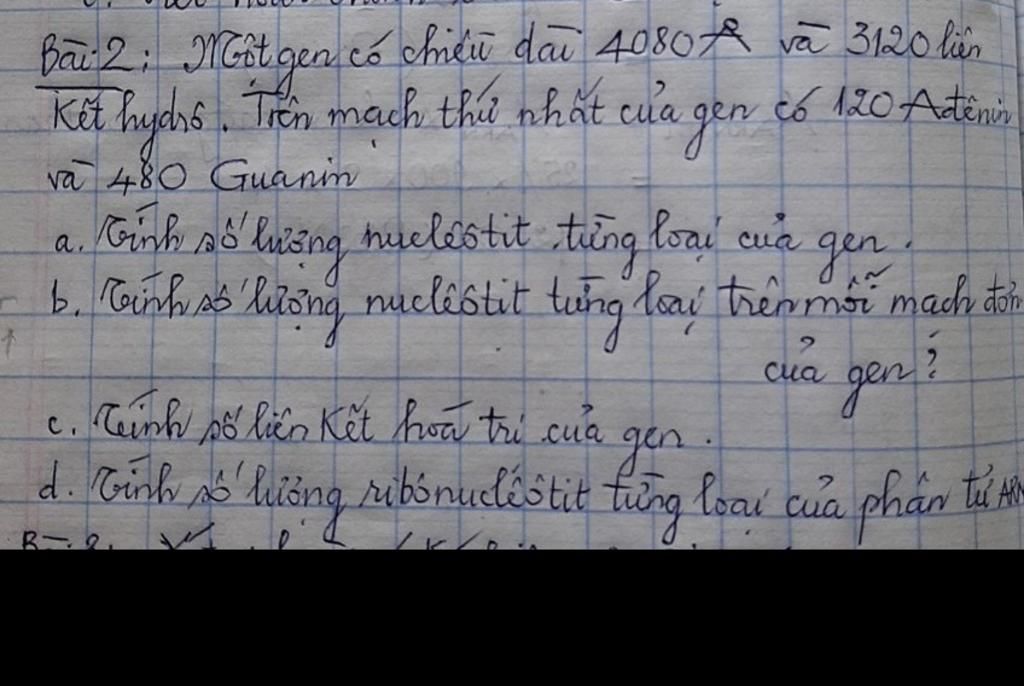 Bài 2: Một gen có chiều dài 4080 Å và 3120 liên
Kết hydrô. Trên mạch thứ nhất của gen có 120 Ađênin
và 480 Guanin
a. Tính số lượng nuclêôtit từng loại của gen.
b. Tính số lượng nuclêôtit từng loại trên mỗi mạch đơn
của gen?
c. Tính số liên Kết hoá trị của gen.
d. Tính số lượng ribônuclêôtit từng loại của phân tử ARN